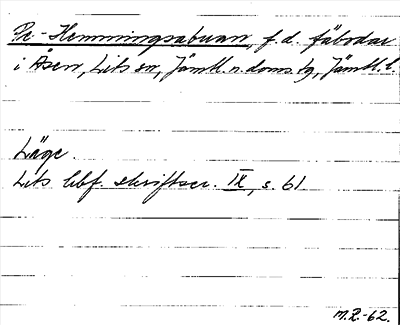 Pe-Hemmingsabuan, f.d. fäbodar
i Åsen, Lits sn, Jämtl. n. doms. tg, Jämtl. l.
Läge.
Lits hbf. skriftser. IX, s. 61
M.R.-62.